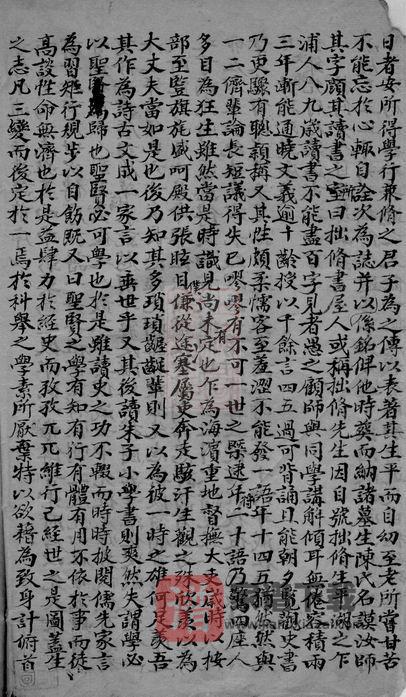 日者安所得學行兼脩之君子為之傳以表著其生平而自幼至老所嘗甘苦
不能忘於心輙自詮次為誌并以係銘俾他時葬而納諸墓生陳氏名謨汝師
其字顏其讀書之室曰拙脩書屋人或稱拙脩先生因自號拙脩生平湖之乍
浦人八九歲讀書不能盡百字見者愚之顧師與同學講解傾耳無倦容積兩
三年漸能通曉文義逾十齡授以千餘言四五過可背誦且能朝夕覽觀史書
乃更驟有聰穎稱又其性頗柔懦客至羞澀不能發一語年十四五猶然與
一二儕輩論長短議得失已嘐嘐有不可一世之槩逮年二十語乃驚四座人
多目為狂生雖然當是時識見尚未定也乍為海濱重地督撫大吏歲時以按
部至監旗旄盛呵殿供張眩目傔從途墓屬吏奔走駭汗生觀之殊欣羡以為
大丈夫當如是也後乃知其多瑣瑣齷齪輩則又以為彼一時之雄何足羨吾
其作為詩古文成一家言以垂世乎又其後讀朱子小學書則爽然失謂學必
以聖賢為歸也聖賢必可學也於是雖讀史之功不輟而時時披閱儒先家言
為習矩行規步以自飭既又曰聖賢之學有知有行有體有用不依於事而徒
高談性命無濟也於是益肆力於經史而孜孜兀兀維行己經世之是圖蓋生
之志凡三變而後定於一焉於科舉之學素所厭棄特以欲藉為致身計俯首